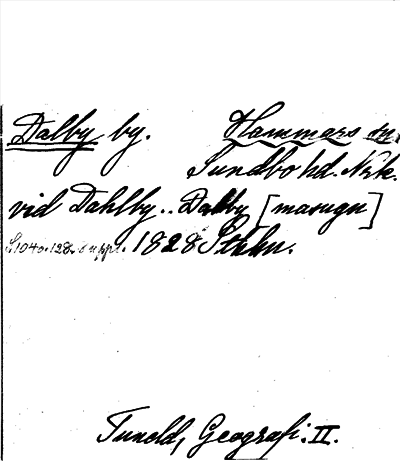 Dalby by. Hammars sn,
Sundbo hd. Nrk.
vid Dahlby.. Dalby [masugn]
S.104o.128. suppl. 1828 Sthlm.
Tuneld, Geografi. II.